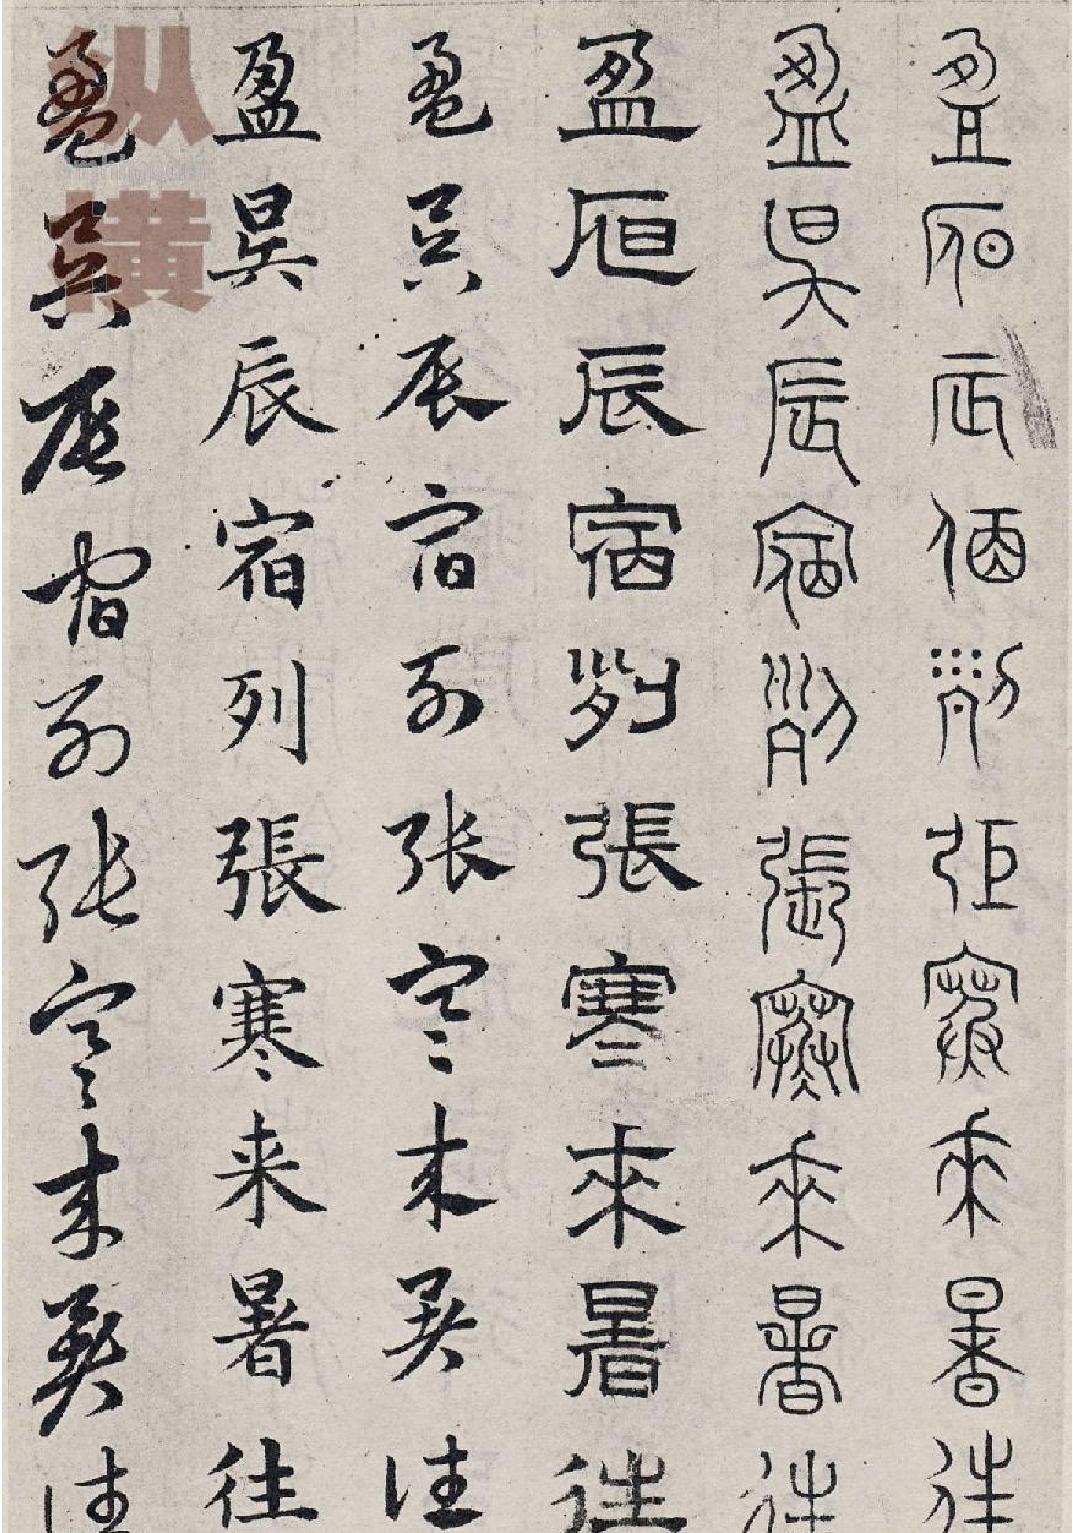 盈昃辰宿列張寒来暑往
盈昃辰宿列張寒來暑往
盈𣅔辰宿列張寒來暑往
盈昃辰宿列张寒来暑往
盈昃辰宿列張寒来暑往
盈昃辰宿列张寒来暑往
纵横